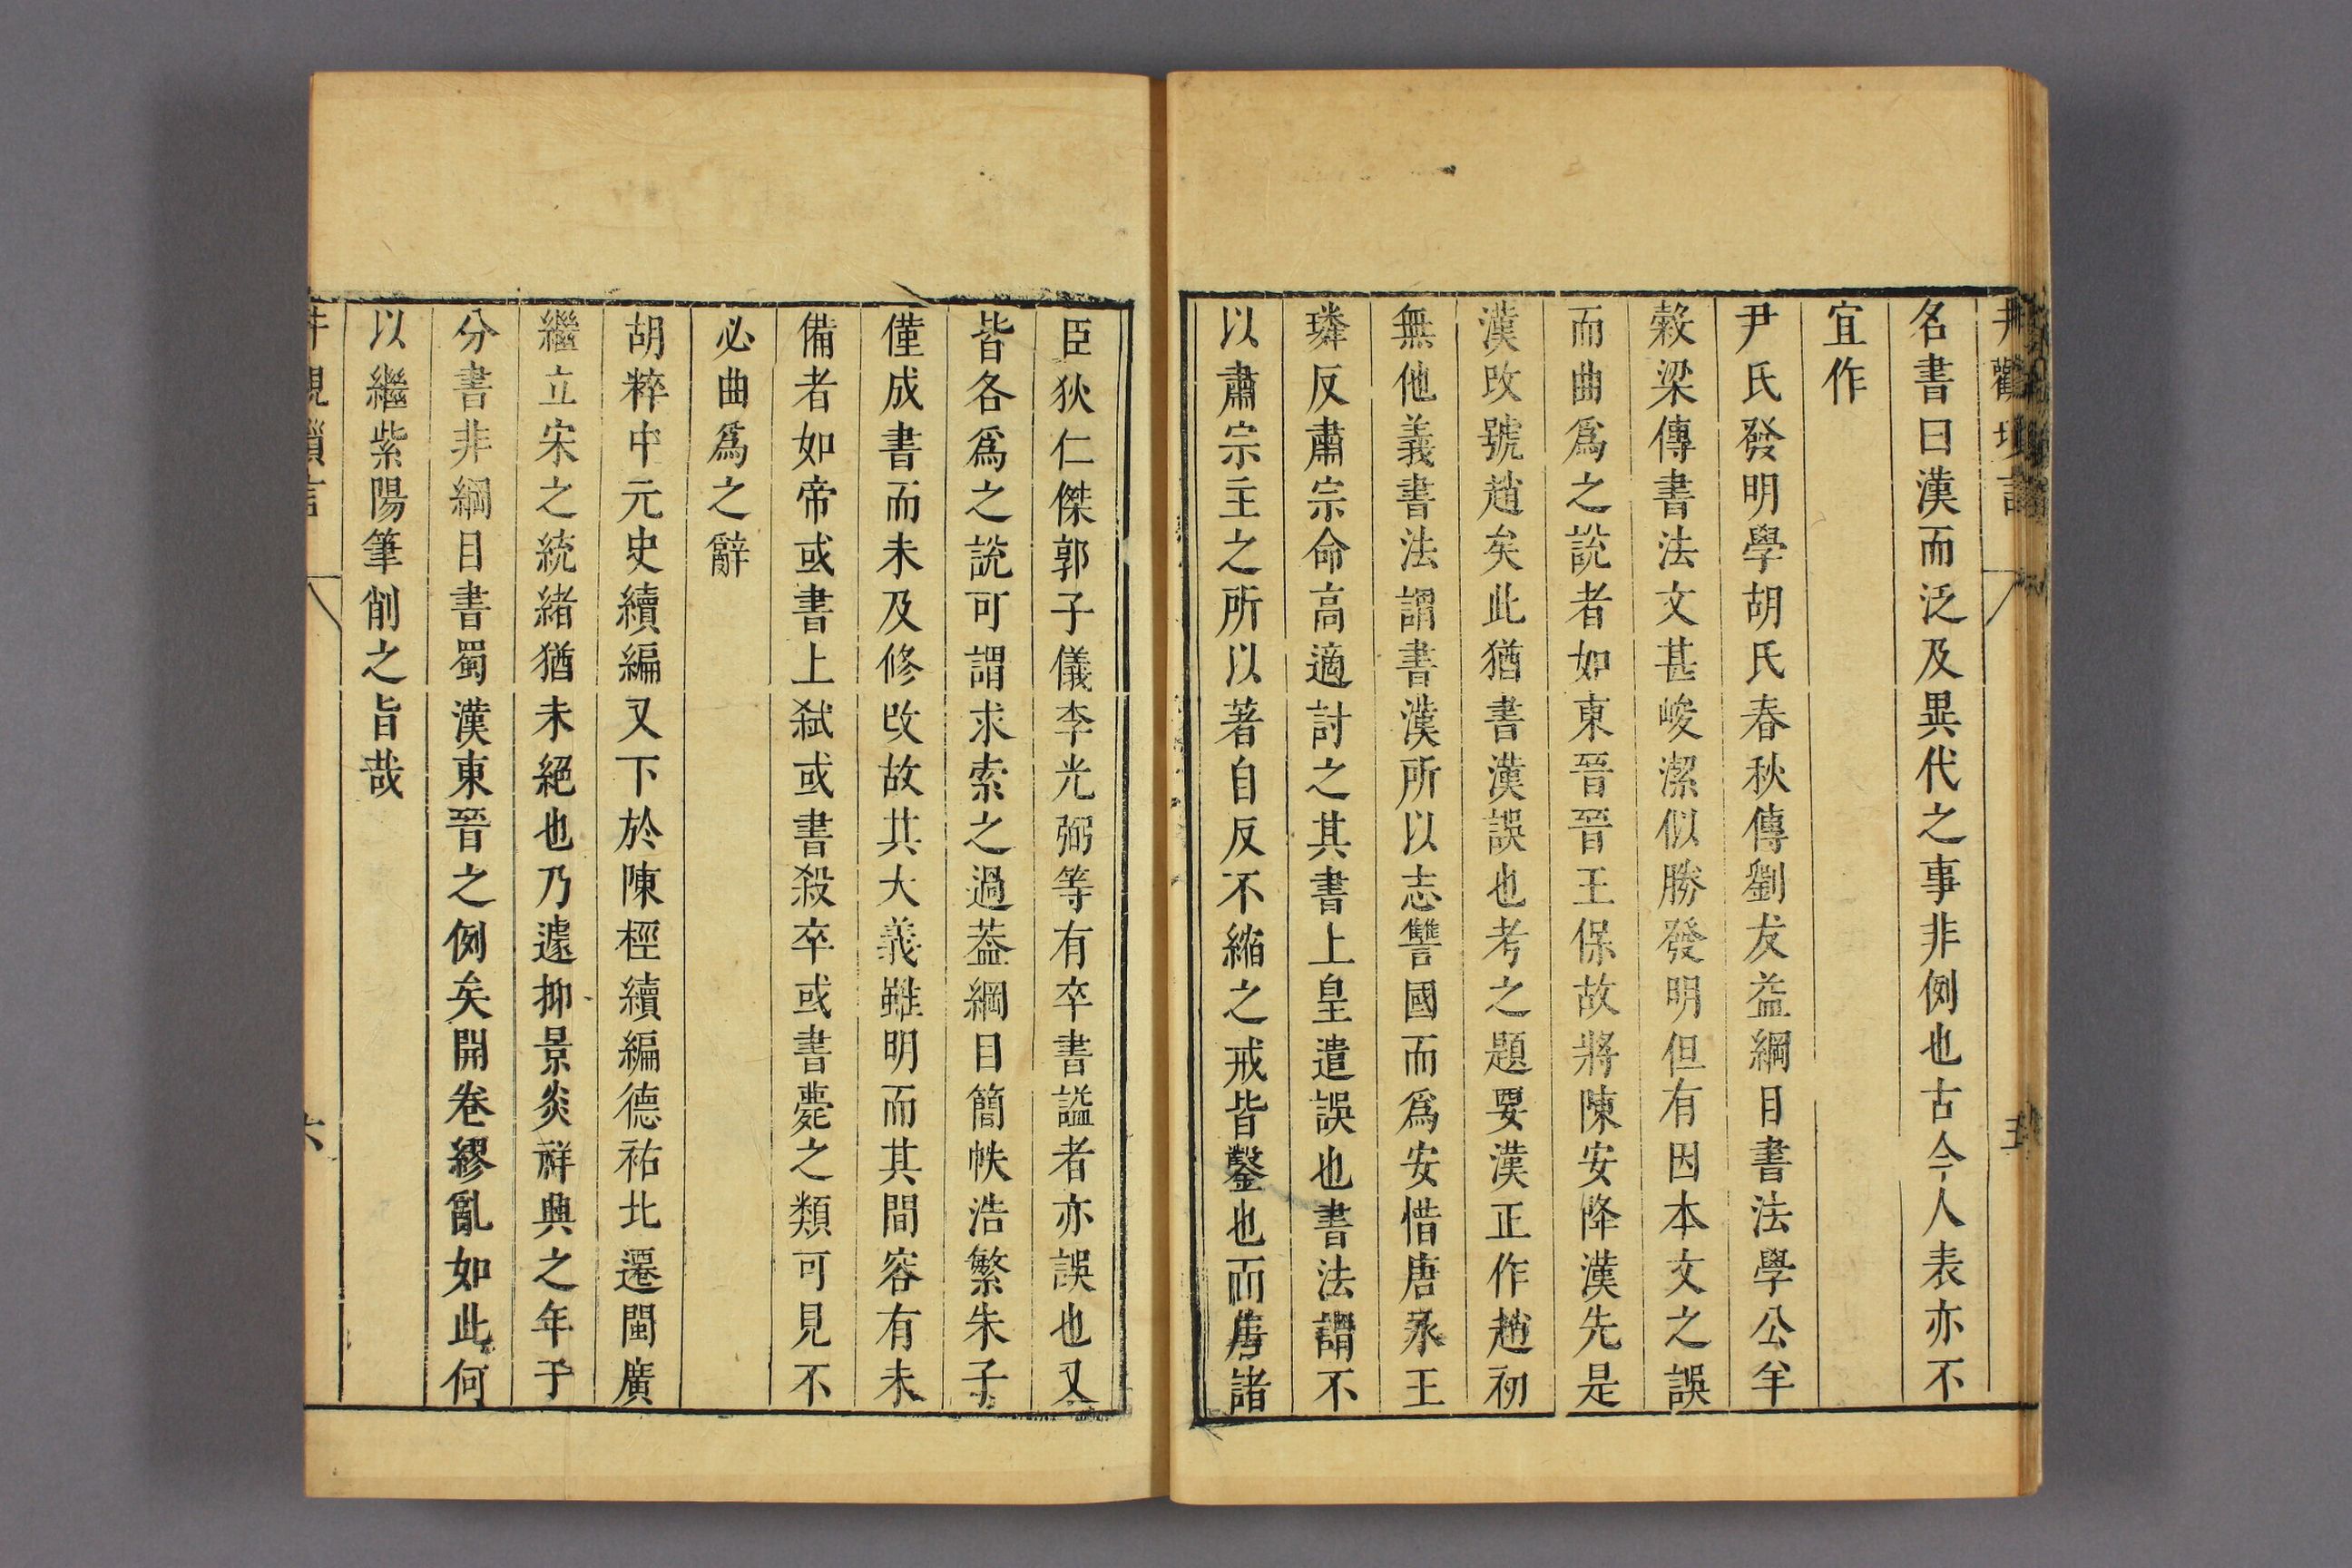 名書曰漢而泛及異代之事非例也古今人表亦不
宜作
尹氏發明學胡氏春秋傳劉友益綱目書法學公羊
榖梁傳書法文甚峻潔似勝發明但有因本文之誤
而曲爲之說者如東晉晉王保故將陳安降漢先是
漢改號趙矣此猶書漢誤也考之題要漢正作趙初
無他義書法謂書漢所以志讐國而爲安惜唐永王
璘反肅宗命高適討之其書上皇遣誤也書法謂不
以肅宗主之所以著自反不縮之戒皆鑿也而唐諸
臣狄仁傑郭子儀李光弼等有卒書謚者亦誤也又
皆各爲之說可謂求索之過葢綱目簡帙浩繁朱子
僅成書而未及修改故其大義雖明而其間容有未
備者如帝或書上弑或書殺卒或書薨之類可見不
必曲爲之辭
胡粹中元史續編又下於陳桱續編德祐北遷閩廣
繼立宋之統緒猶未絕也乃遽抑景炎祥興之年于
分書非綱目書蜀漢東晉之例矣開卷繆亂如此何
以繼紫陽筆削之旨哉
六